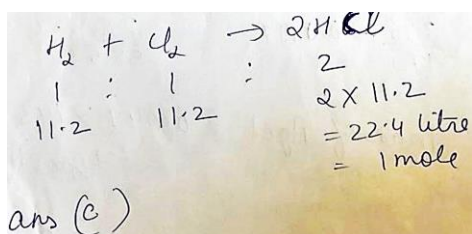 H₂ + Cl₂ → 2HCl
1 : 1 : 2
11.2 11.2 2 × 11.2
= 22.4 litre
= 1 mole
ans (c)